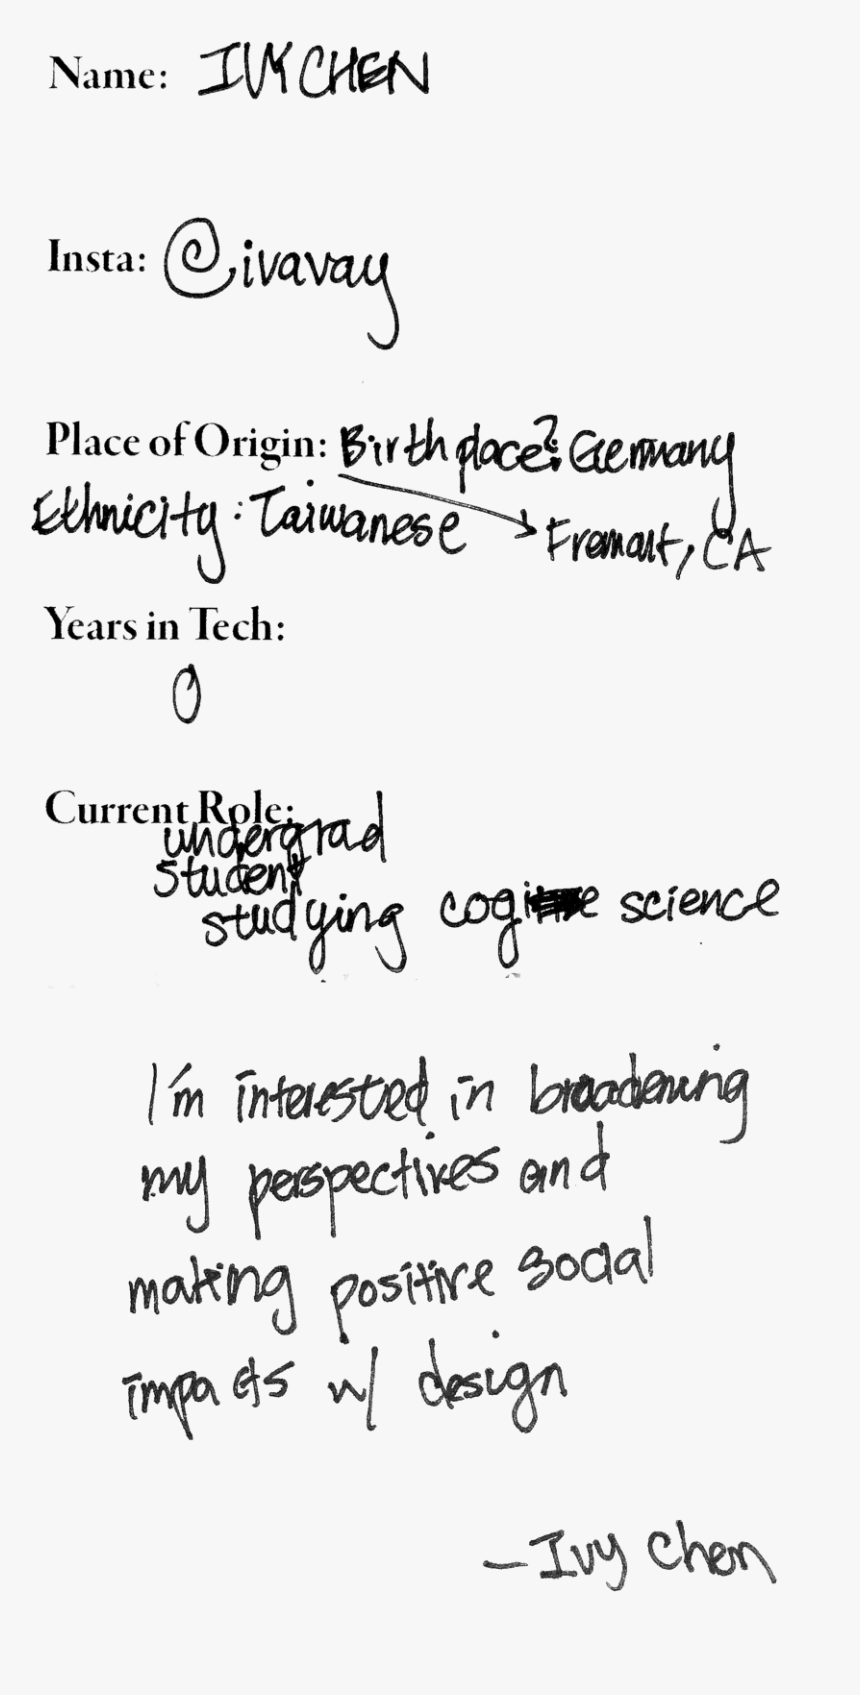 Name: IVY CHEN
Insta: @ivavay
Place of Origin: Birthplace?: Germany
Ethnicity: Taiwanese → Fremont, CA
Years in Tech:
0
Current Role:
undergrad
student
studying cog science
I'm interested in broadening
my perspectives and
making positive social
impacts w/ design
– Ivy Chen